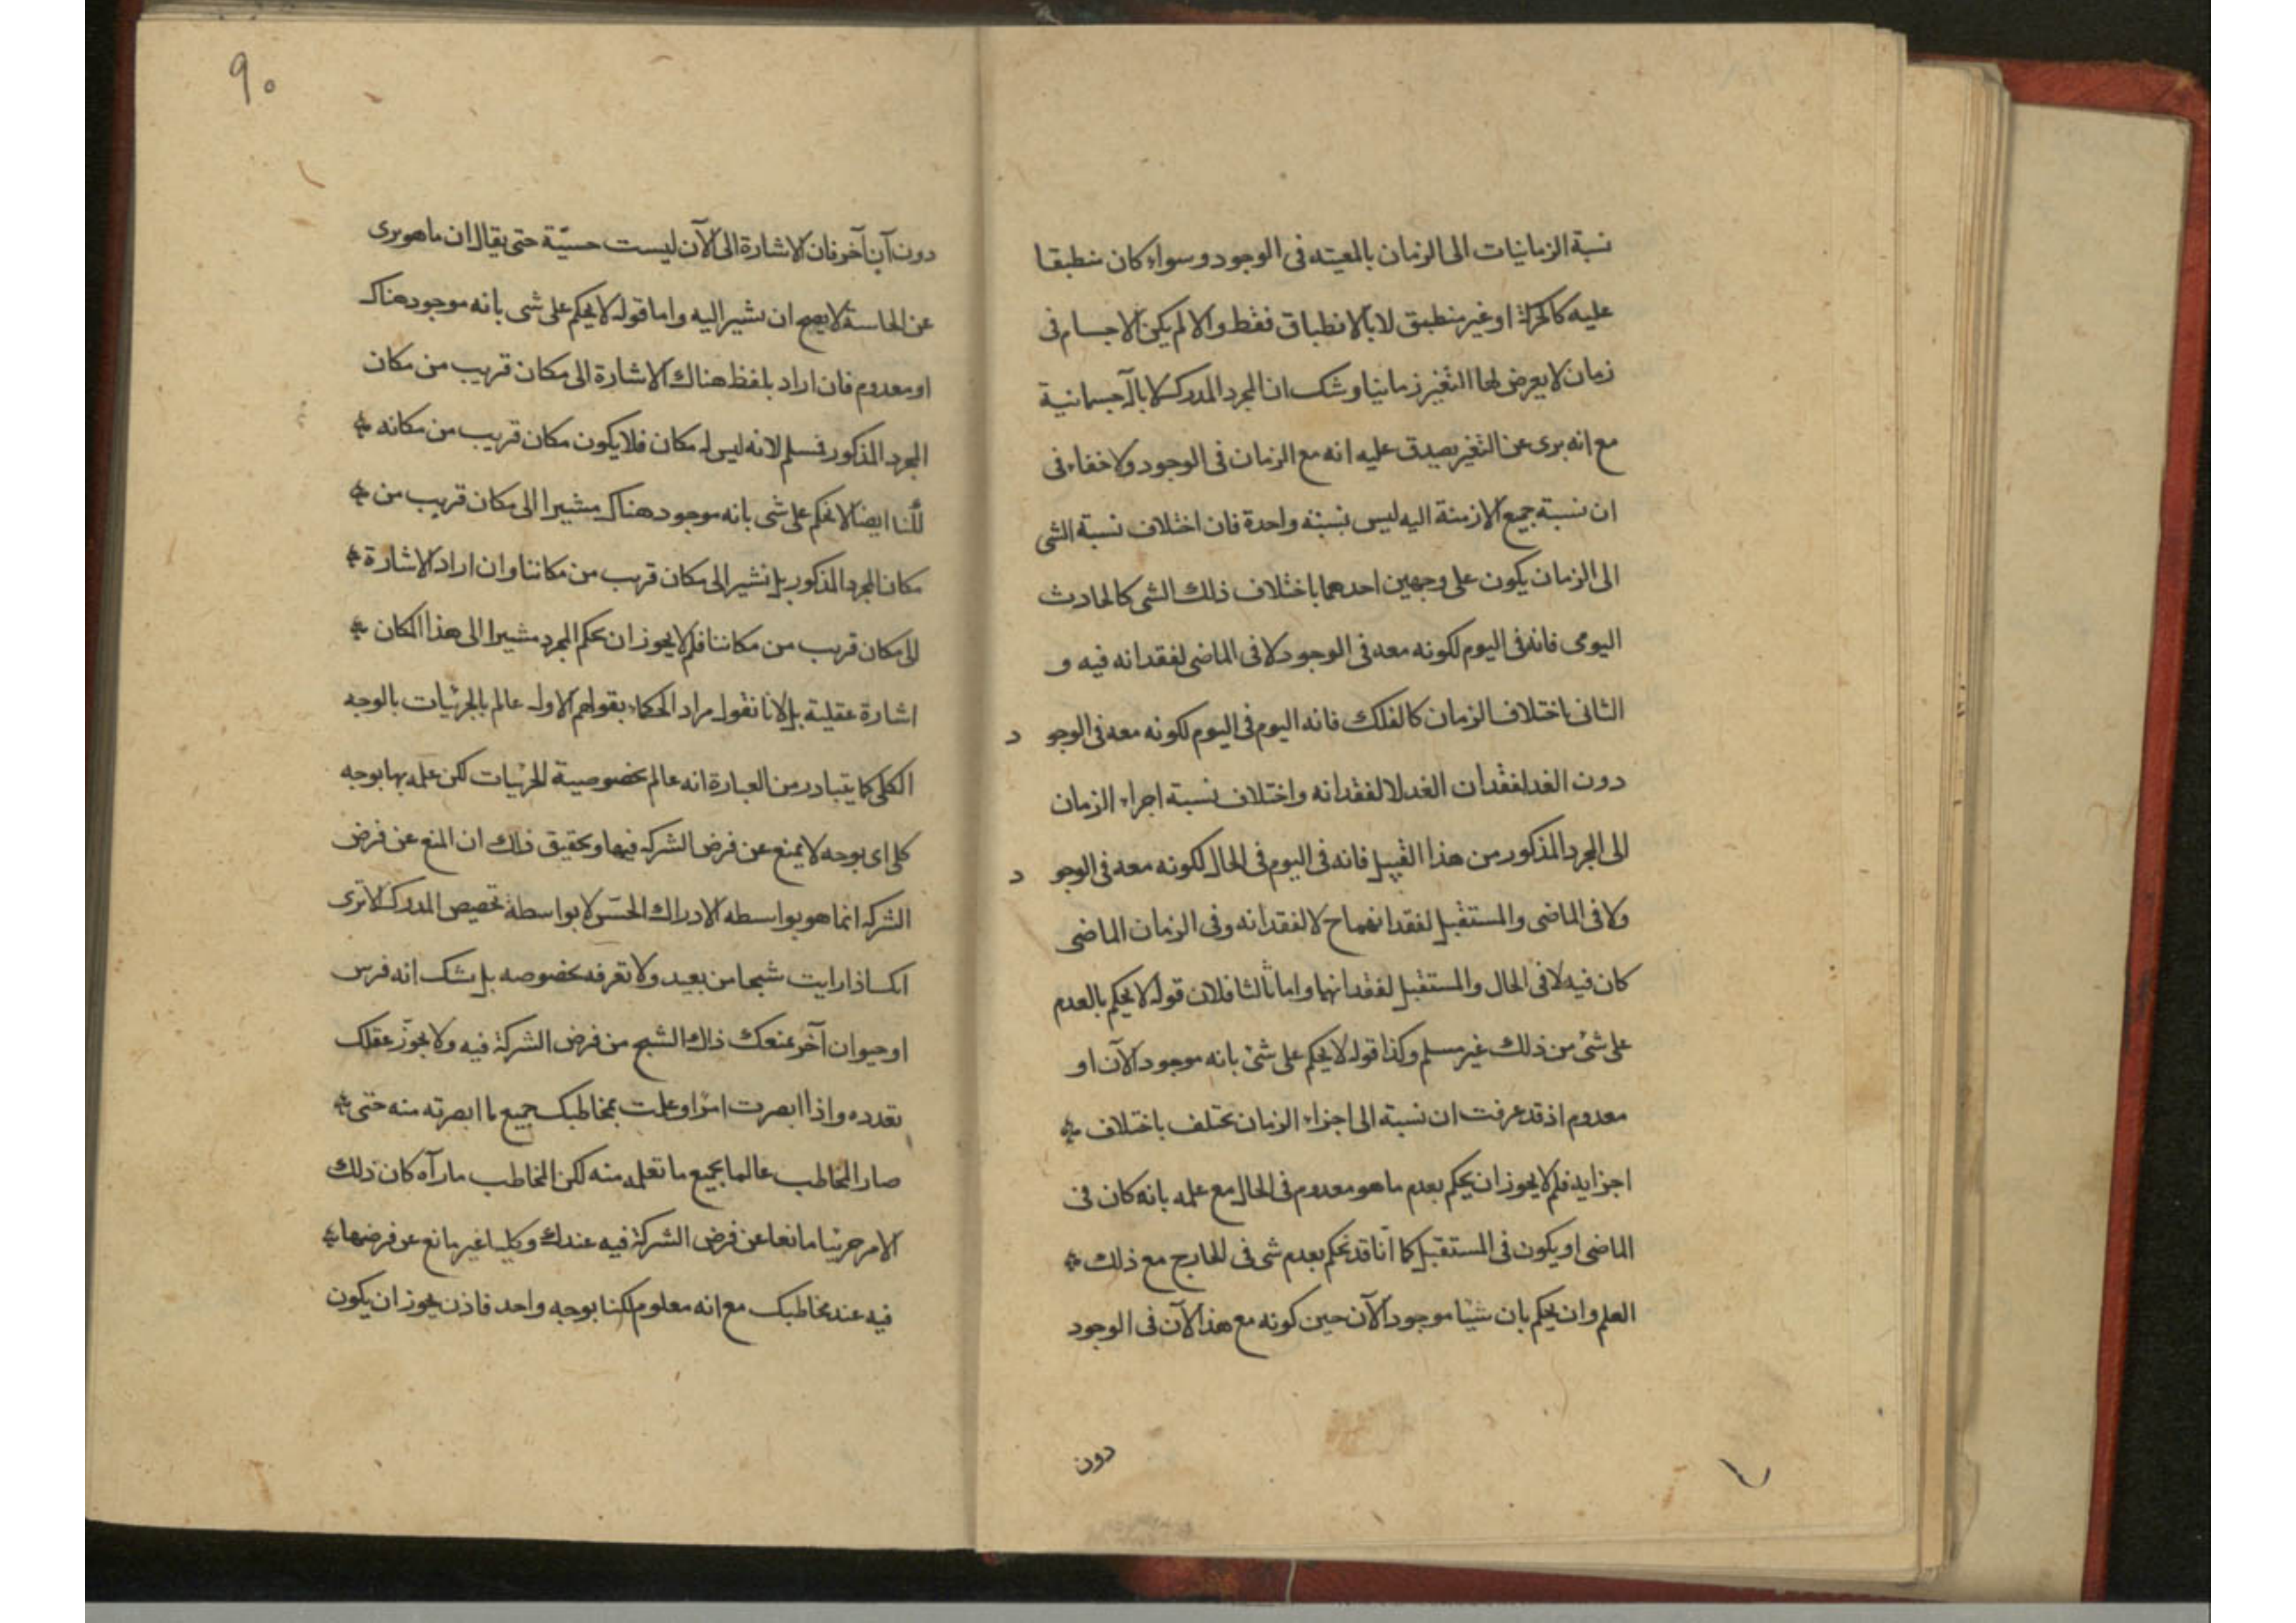 نسبة الزمانيات الى الزمان بالمعيته فى الوجود وسواء كان منطبقا
عليه كالحركة او غير منطبق لا بالانطباق فقط والا لم يكن الاجسام فى
زمان لا يعرض لها التغير زمانيا وشك ان المجرد المدرك لا بآلة جسمانية
مع انه برى عن التغير يصدق عليه انه مع الزمان فى الوجود ولا خفاء فى
ان نسبة جميع الازمنة اليه ليس بنسبة واحدة فان اختلاف نسبة الشى
الى الزمان يكون على وجهين احدهما باختلاف ذلك الشى كالحادث
اليومى فانه فى اليوم لكونه معه فى الوجود لا فى الماضى لفقدانه فيه و
الثانى باختلاف الزمان كالفلك فانه اليوم فى اليوم لكونه معه فى الوجو د
دون الغد لفقدان الغد لا لفقدانه واختلاف نسبة اجزاء الزمان
الى المجرد المذكور من هذا القبيل فانه فى اليوم فى الحال لكونه معه فى الوجو د
ولا فى الماضى والمستقبل لفقدانهما ح لا لفقدانه وفى الزمان الماضى
كان فيه لا فى الحال والمستقبل لفقدانهما واما ثالثا فلان قوله لا يحكم بالعدم
على شئ من ذلك غير مسلم وكذا قوله لا يحكم على شئ بانه موجود الآن او
معدوم اذ قد عرفت ان نسبة الى اجزاء الزمان تختلف باختلاف
اجزايه فلم لا يجوز ان يحكم بعدم ما هو معدوم فى الحال مع علمه بانه كان فى
الماضى او يكون فى المستقبل كما انا قد نحكم بعدم شى فى الخارج مع ذلك
العلم وان يحكم بان شيئا موجود الآن حين كونه مع هذا الآن فى الوجود
دون
٩٠
دون آن آخر فان الاشارة الى الآن ليست حسيّة حتى يقال ان ما هو برى
عن الحاسة لا يصح ان نشير اليه واما قوله لا يحكم على شى بانه موجود هناك
او معدوم فان اراد بلفظ هناك الاشارة الى مكان قريب من مكان
المجرد المذكور فمسلم لانه ليس له مكان فلا يكون مكان قريب من مكانه
لكنا ايضا لا نحكم على شى بانه موجود هناك مشيرا الى مكان قريب من
مكان المجرد المذكور بل نشير الى مكان قريب من مكاننا وان اراد الاشارة
الى مكان قريب من مكاننا فلم لا يجوز ان يحكم المجرد مشيرا الى هذا المكان
اشارة عقلية بل لانا نقول مراد الحكماء بقولهم الاول عالم بالجزئيات بالوجه
الكلى كما يتبادر من العبارة انه عالم بخصوصية الجزئيات لكن علمه بها بوجه
كلى اى بوجه لا يمنع عن فرض الشركة فيها وتحقيق ذلك ان المنع عن فرض
الشركة انما هو بواسطه الادراك الحسّى لا بواسطة تخصيص المدرك الا ترى
انك اذا رايت شبحا من بعيد ولا تعرفه بخصوصه بل شك انه فرس
او حيوان آخر عنعك ذلك الشبح من فرض الشركة فيه ولا يجوّز عقلك
تعدده واذا ابصرت امرا وعلمت بمخاطبك جميع ما ابصرته منه حتى
صار المخاطب عالما بجميع ما تعلمه منه لكن المخاطب ما رآه كان ذلك
الامر جزئيا مانعا عن فرض الشركة فيه عندك وكليا غير مانع عن فرضها
فيه عند مخاطبك مع انه معلوم لكنا بوجه واحد فاذن يجوز ان يكون